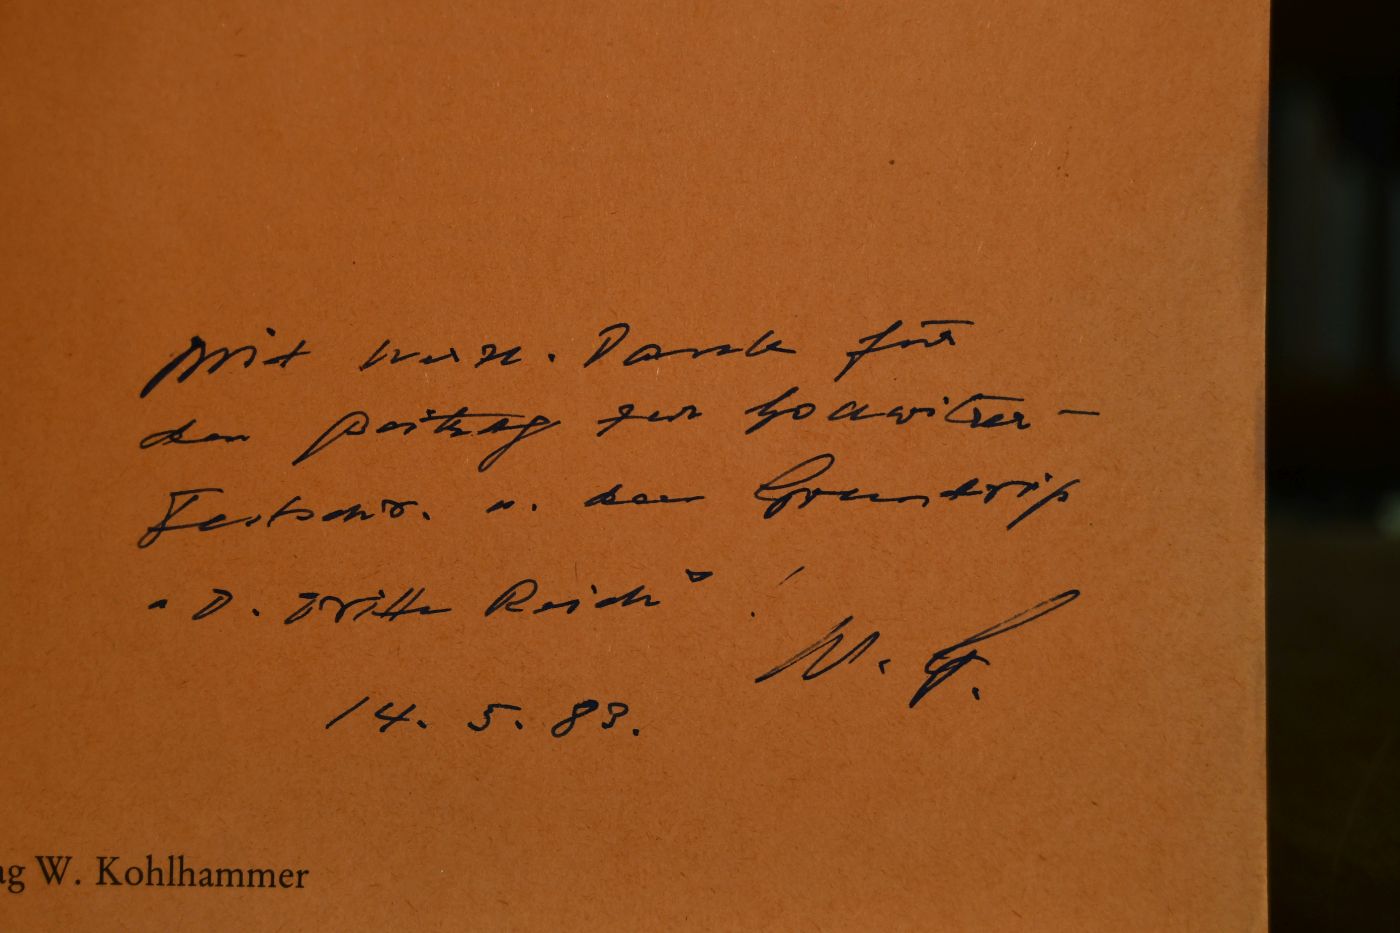 Mit herzl. Dank für
den Beitrag zur
Festschr. u. den Grundriß
"D. Dritte Reich"!
W. G.
14. 5. 83.
ag W. Kohlhammer